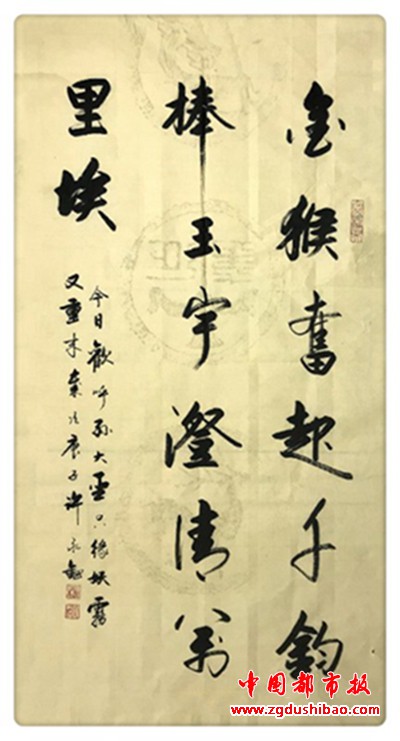 金猴奮起千鈞
棒玉宇澄清萬
里埃
今日歡呼孫大聖只緣妖霧
又重來 庚子許永
中國都市报
www.zgdushibao.com